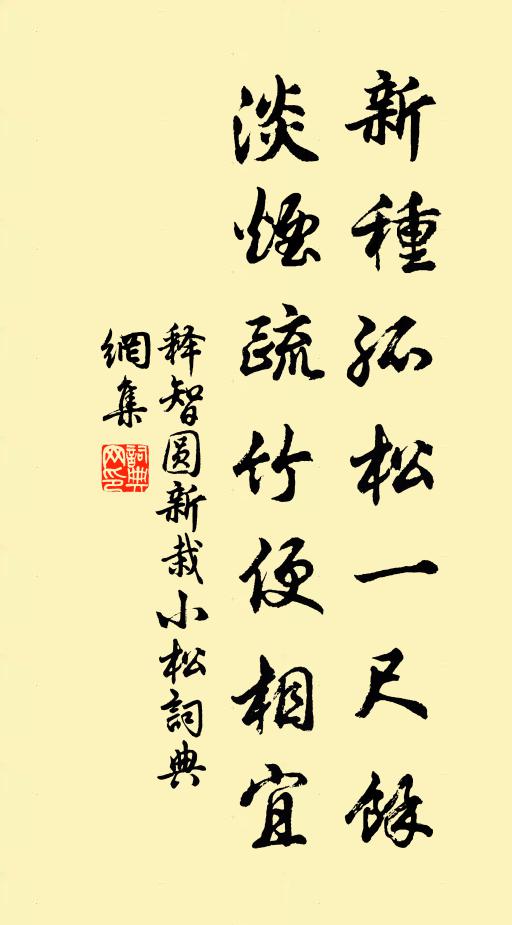 新種孤松一尺餘
淡煙疏竹便相宜
释智圆新栽小松詞典
網集
詞典网印